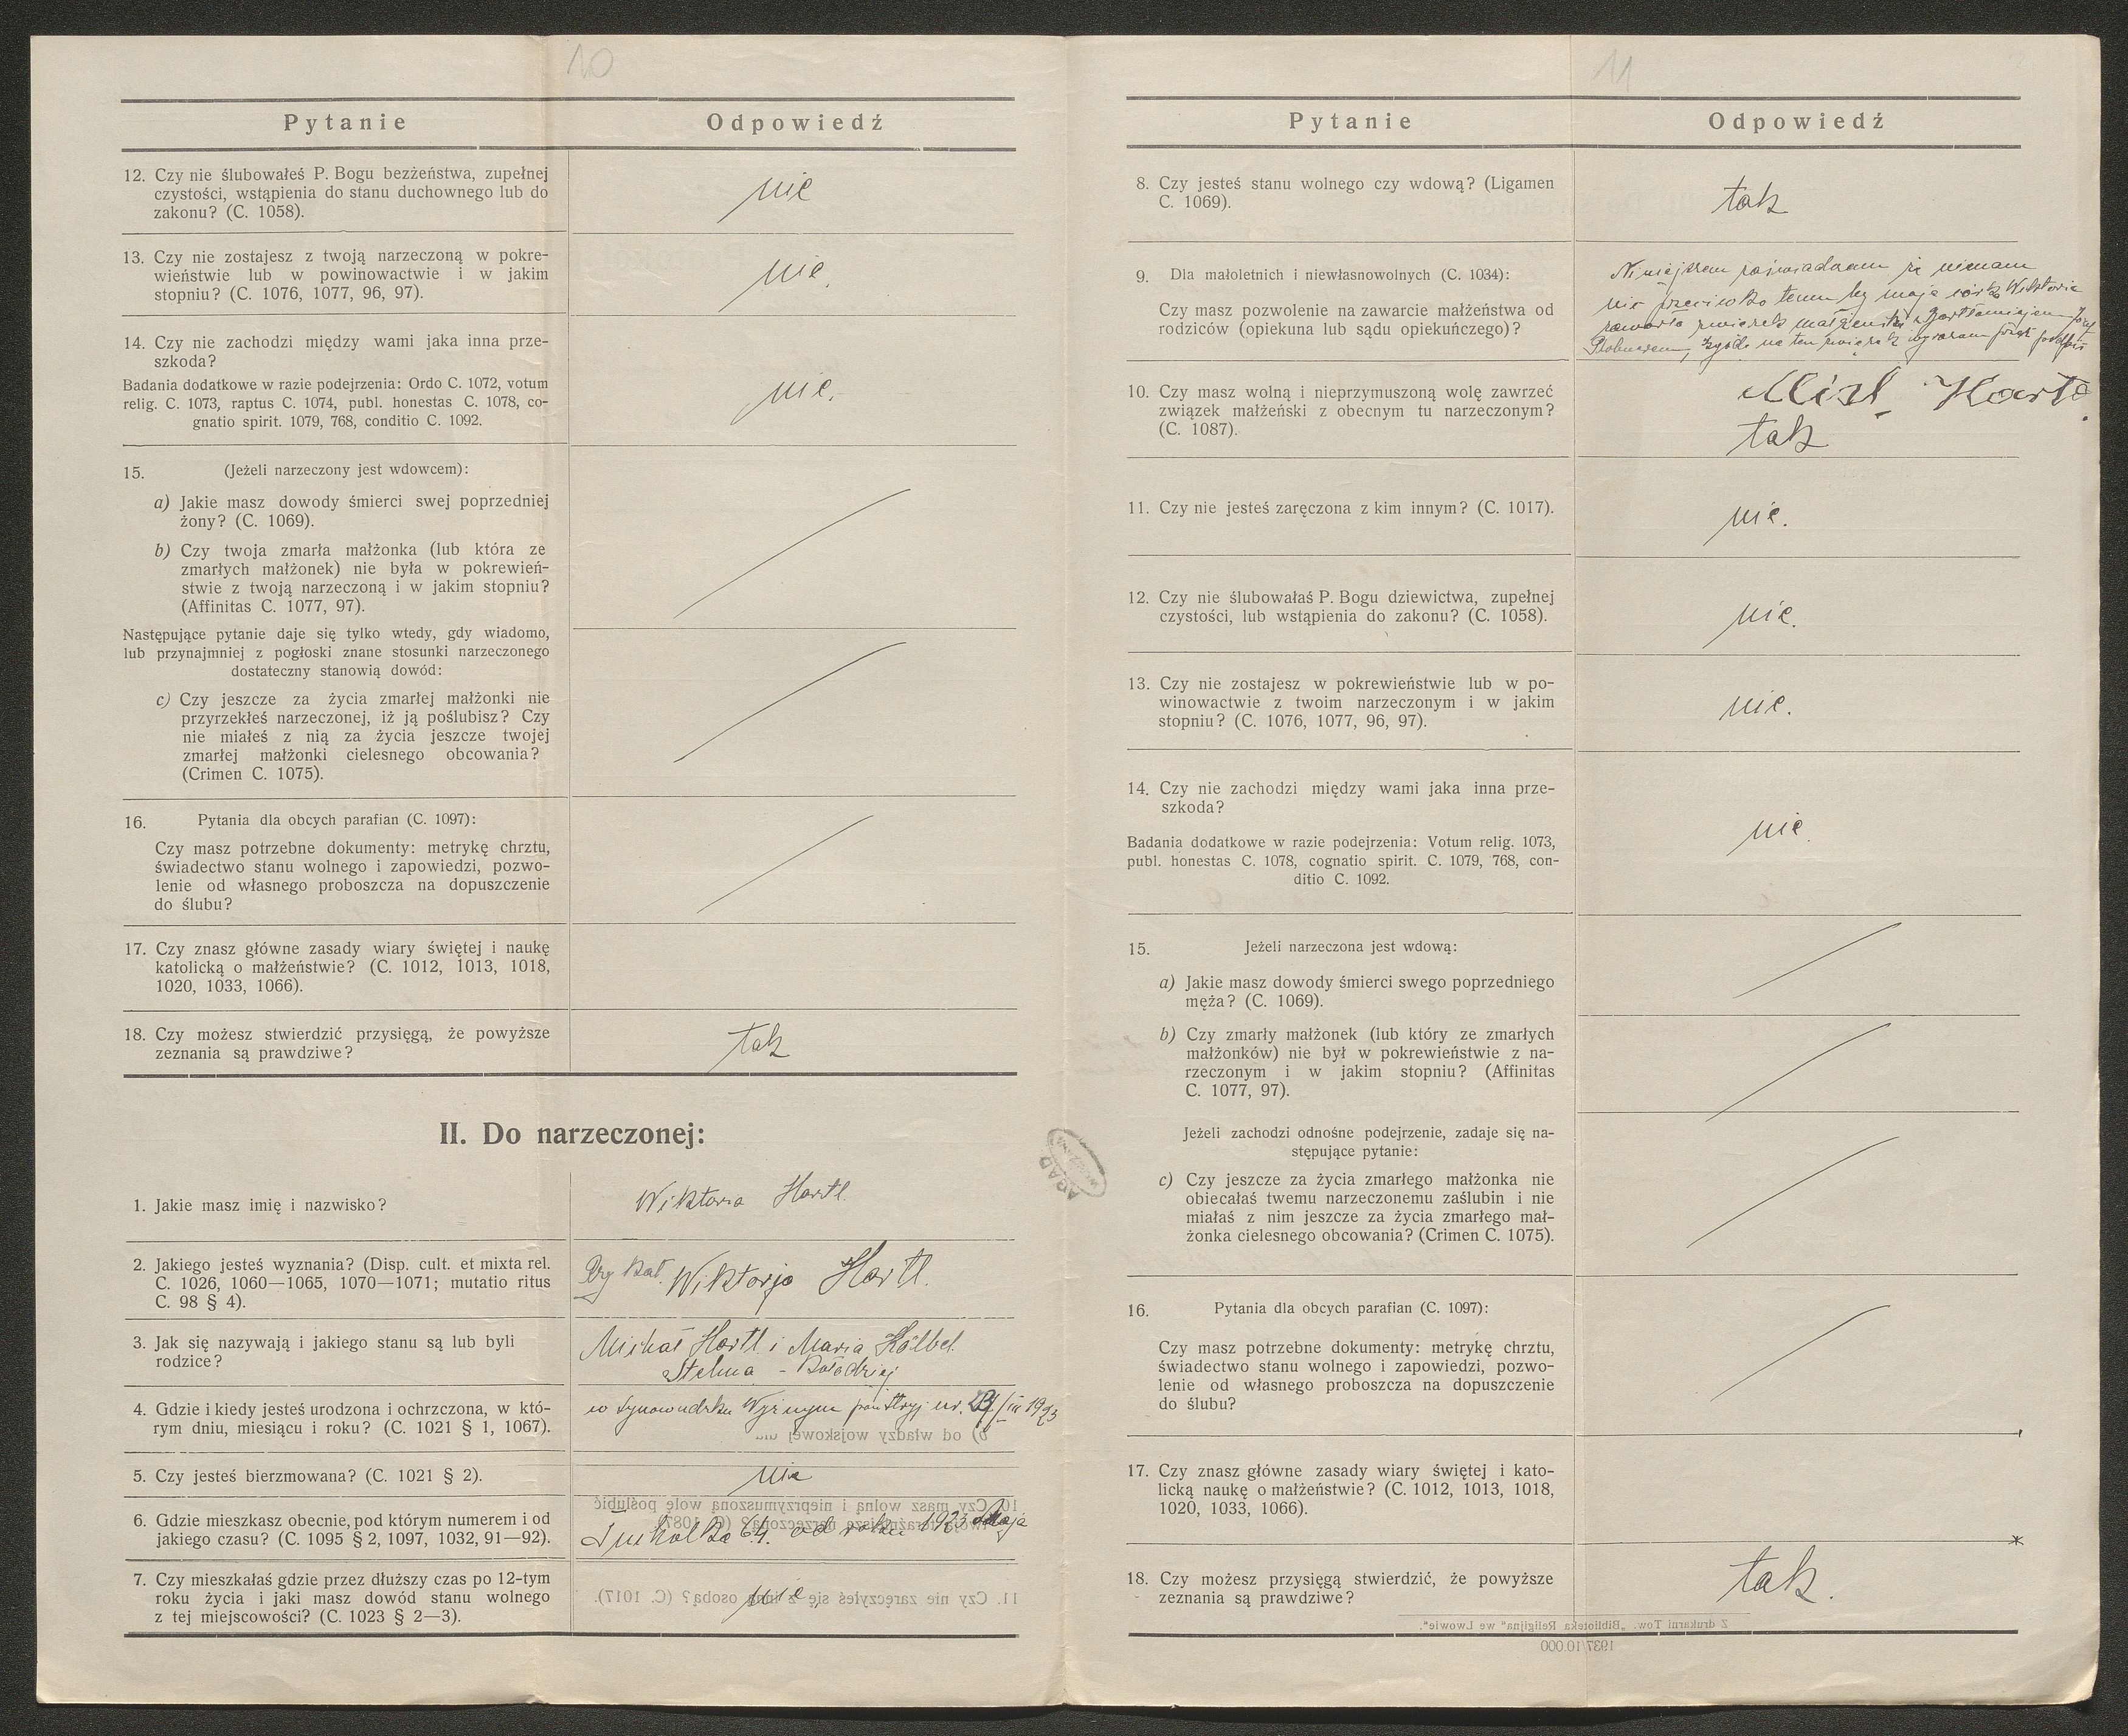 10
Pytanie
Odpowiedź
12. Czy nie ślubowałeś P. Bogu bezżeństwa, zupełnej
czystości, wstąpienia do stanu duchownego lub do
zakonu? (C. 1058).
nie
13. Czy nie zostajesz z twoją narzeczoną w pokre-
wieństwie lub w powinowactwie i w jakim
stopniu? (C. 1076, 1077, 96, 97).
nie.
14. Czy nie zachodzi między wami jaka inna prze-
szkoda?
Badania dodatkowe w razie podejrzenia: Ordo C. 1072, votum
relig. C. 1073, raptus C. 1074, publ. honestas C. 1078, co-
gnatio spirit. 1079, 768, conditio C. 1092.
nie.
15. (Jeżeli narzeczony jest wdowcem):
a) Jakie masz dowody śmierci swej poprzedniej
żony? (C. 1069).
b) Czy twoja zmarła małżonka (lub która ze
zmarłych małżonek) nie była w pokrewień-
stwie z twoją narzeczoną i w jakim stopniu?
(Affinitas C. 1077, 97).
Następujące pytanie daje się tylko wtedy, gdy wiadomo,
lub przynajmniej z pogłoski znane stosunki narzeczonego
dostateczny stanowią dowód:
c) Czy jeszcze za życia zmarłej małżonki nie
przyrzekłeś narzeczonej, iż ją poślubisz? Czy
nie miałeś z nią za życia jeszcze twojej
zmarłej małżonki cielesnego obcowania?
(Crimen C. 1075).
16. Pytania dla obcych parafian (C. 1097):
Czy masz potrzebne dokumenty: metrykę chrztu,
świadectwo stanu wolnego i zapowiedzi, pozwo-
lenie od własnego proboszcza na dopuszczenie
do ślubu?
17. Czy znasz główne zasady wiary świętej i naukę
katolicką o małżeństwie? (C. 1012, 1013, 1018,
1020, 1033, 1066).
18. Czy możesz stwierdzić przysięgą, że powyższe
zeznania są prawdziwe?
tak
II. Do narzeczonej:
1. Jakie masz imię i nazwisko?
Wiktoria Hartl
2. Jakiego jesteś wyznania? (Disp. cult. et mixta rel.
C. 1026, 1060—1065, 1070—1071; mutatio ritus
C. 98 § 4).
kat. Wiktorja Hartl.
3. Jak się nazywają i jakiego stanu są lub byli
rodzice?
Michał Hartl i Maria Kölbel
Stelma - Kołodziej
4. Gdzie i kiedy jesteś urodzona i ochrzczona, w któ-
rym dniu, miesiącu i roku? (C. 1021 § 1, 1067).
w Synowudzku Wyżnym pow Stryj ur. /III 1923
b) od władzy wojskowej
5. Czy jesteś bierzmowana? (C. 1021 § 2).
nie
10. Czy masz wolną i nieprzymuszoną wolę poślubić
6. Gdzie mieszkasz obecnie, pod którym numerem i od
jakiego czasu? (C. 1095 § 2, 1097, 1032, 91—92).
Tucholka 64. od roku 1923 maja
7. Czy mieszkałaś gdzie przez dłuższy czas po 12-tym
roku życia i jaki masz dowód stanu wolnego
z tej miejscowości? (C. 1023 § 2—3).
nie.
11. Czy nie zaręczyłeś się z inną osobą? (C. 1017).
ADAP
11
Pytanie
Odpowiedź
8. Czy jesteś stanu wolnego czy wdową? (Ligamen
C. 1069).
tak
9. Dla małoletnich i niewłasnowolnych (C. 1034):
Czy masz pozwolenie na zawarcie małżeństwa od
rodziców (opiekuna lub sądu opiekuńczego)?
Niniejszem zaświadczam że niemam
nic przeciwko temu by moja córka Wiktoria
zawarła związek małżeński z Bartłomiejem
zgodę na ten związek wyrażam przez podpis
Hartl
10. Czy masz wolną i nieprzymuszoną wolę zawrzeć
związek małżeński z obecnym tu narzeczonym?
(C. 1087).
tak
11. Czy nie jesteś zaręczona z kim innym? (C. 1017).
nie.
12. Czy nie ślubowałaś P. Bogu dziewictwa, zupełnej
czystości, lub wstąpienia do zakonu? (C. 1058).
nie.
13. Czy nie zostajesz w pokrewieństwie lub w po-
winowactwie z twoim narzeczonym i w jakim
stopniu? (C. 1076, 1077, 96, 97).
nie.
14. Czy nie zachodzi między wami jaka inna prze-
szkoda?
Badania dodatkowe w razie podejrzenia: Votum relig. 1073,
publ. honestas C. 1078, cognatio spirit. C. 1079, 768, con-
ditio C. 1092.
nie.
15. Jeżeli narzeczona jest wdową:
a) Jakie masz dowody śmierci swego poprzedniego
męża? (C. 1069).
b) Czy zmarły małżonek (lub który ze zmarłych
małżonków) nie był w pokrewieństwie z na-
rzeczonym i w jakim stopniu? (Affinitas
C. 1077, 97).
Jeżeli zachodzi odnośne podejrzenie, zadaje się na-
stępujące pytanie:
c) Czy jeszcze za życia zmarłego małżonka nie
obiecałaś twemu narzeczonemu zaślubin i nie
miałaś z nim jeszcze za życia zmarłego mał-
żonka cielesnego obcowania? (Crimen C. 1075).
16. Pytania dla obcych parafian (C. 1097):
Czy masz potrzebne dokumenty: metrykę chrztu,
świadectwo stanu wolnego i zapowiedzi, pozwo-
lenie od własnego proboszcza na dopuszczenie
do ślubu?
17. Czy znasz główne zasady wiary świętej i kato-
licką naukę o małżeństwie? (C. 1012, 1013, 1018,
1020, 1033, 1066).
18. Czy możesz przysięgą stwierdzić, że powyższe
zeznania są prawdziwe?
tak.
Z drukarni Tow. „Biblioteka Religijna“ we Lwowie“.
1937/10.000